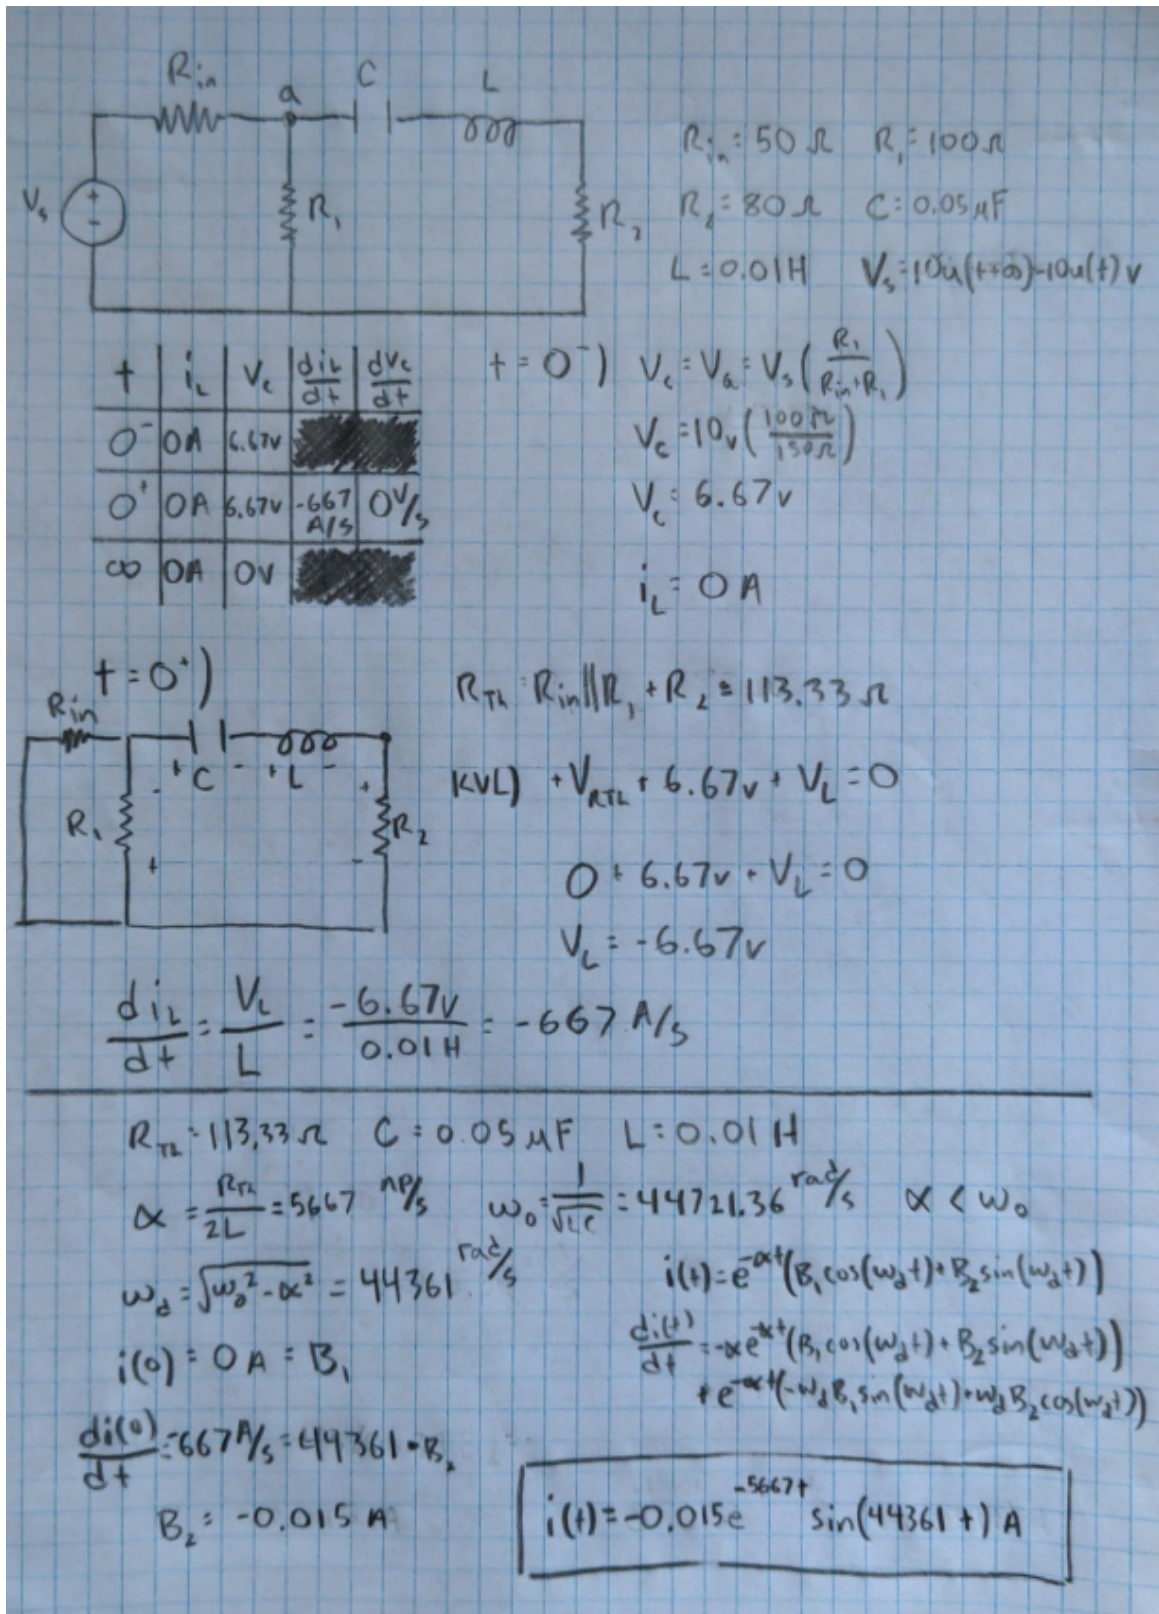 R_in C
a L
V_s + - R_1 R_2
R_in = 50 Ω R_1 = 100 Ω
R_2 = 80 Ω C = 0.05 μF
L = 0.01 H V_s = 10u(t+∞)-10u(t) v
t i_L V_c di_L/dt dV_c/dt
0⁻ 0A 6.67v
0⁺ 0A 6.67v -667 A/s 0 V/s
∞ 0A 0V
t = 0⁻) V_c = V_a = V_s (R_1/(R_in+R_1))
V_c = 10v (100Ω/150Ω)
V_c = 6.67v
i_L = 0 A
t = 0⁺)
R_in
+ C - + L -
R_1 - + R_2 + -
R_Th = R_in||R_1 + R_2 = 113.33 Ω
KVL) +V_RTh + 6.67v + V_L = 0
0 + 6.67v + V_L = 0
V_L = -6.67v
di_L/dt = V_L/L = -6.67v/0.01H = -667 A/s
R_Th = 113.33 Ω C = 0.05 μF L = 0.01 H
α = R_Th/2L = 5667 np/s ω_0 = 1/√LC = 44721.36 rad/s α < ω_0
ω_d = √(ω_0² - α²) = 44361 rad/s i(t) = e^-αt (B_1 cos(ω_d t) + B_2 sin(ω_d t))
i(0) = 0 A = B_1 di(t)/dt = -αe^-αt (B_1 cos(ω_d t) + B_2 sin(ω_d t))
+ e^-αt (-ω_d B_1 sin(ω_d t) + ω_d B_2 cos(ω_d t))
di(0)/dt = -667 A/s = 44361 • B_2
B_2 = -0.015 A
i(t) = -0.015e^-5667t sin(44361 t) A